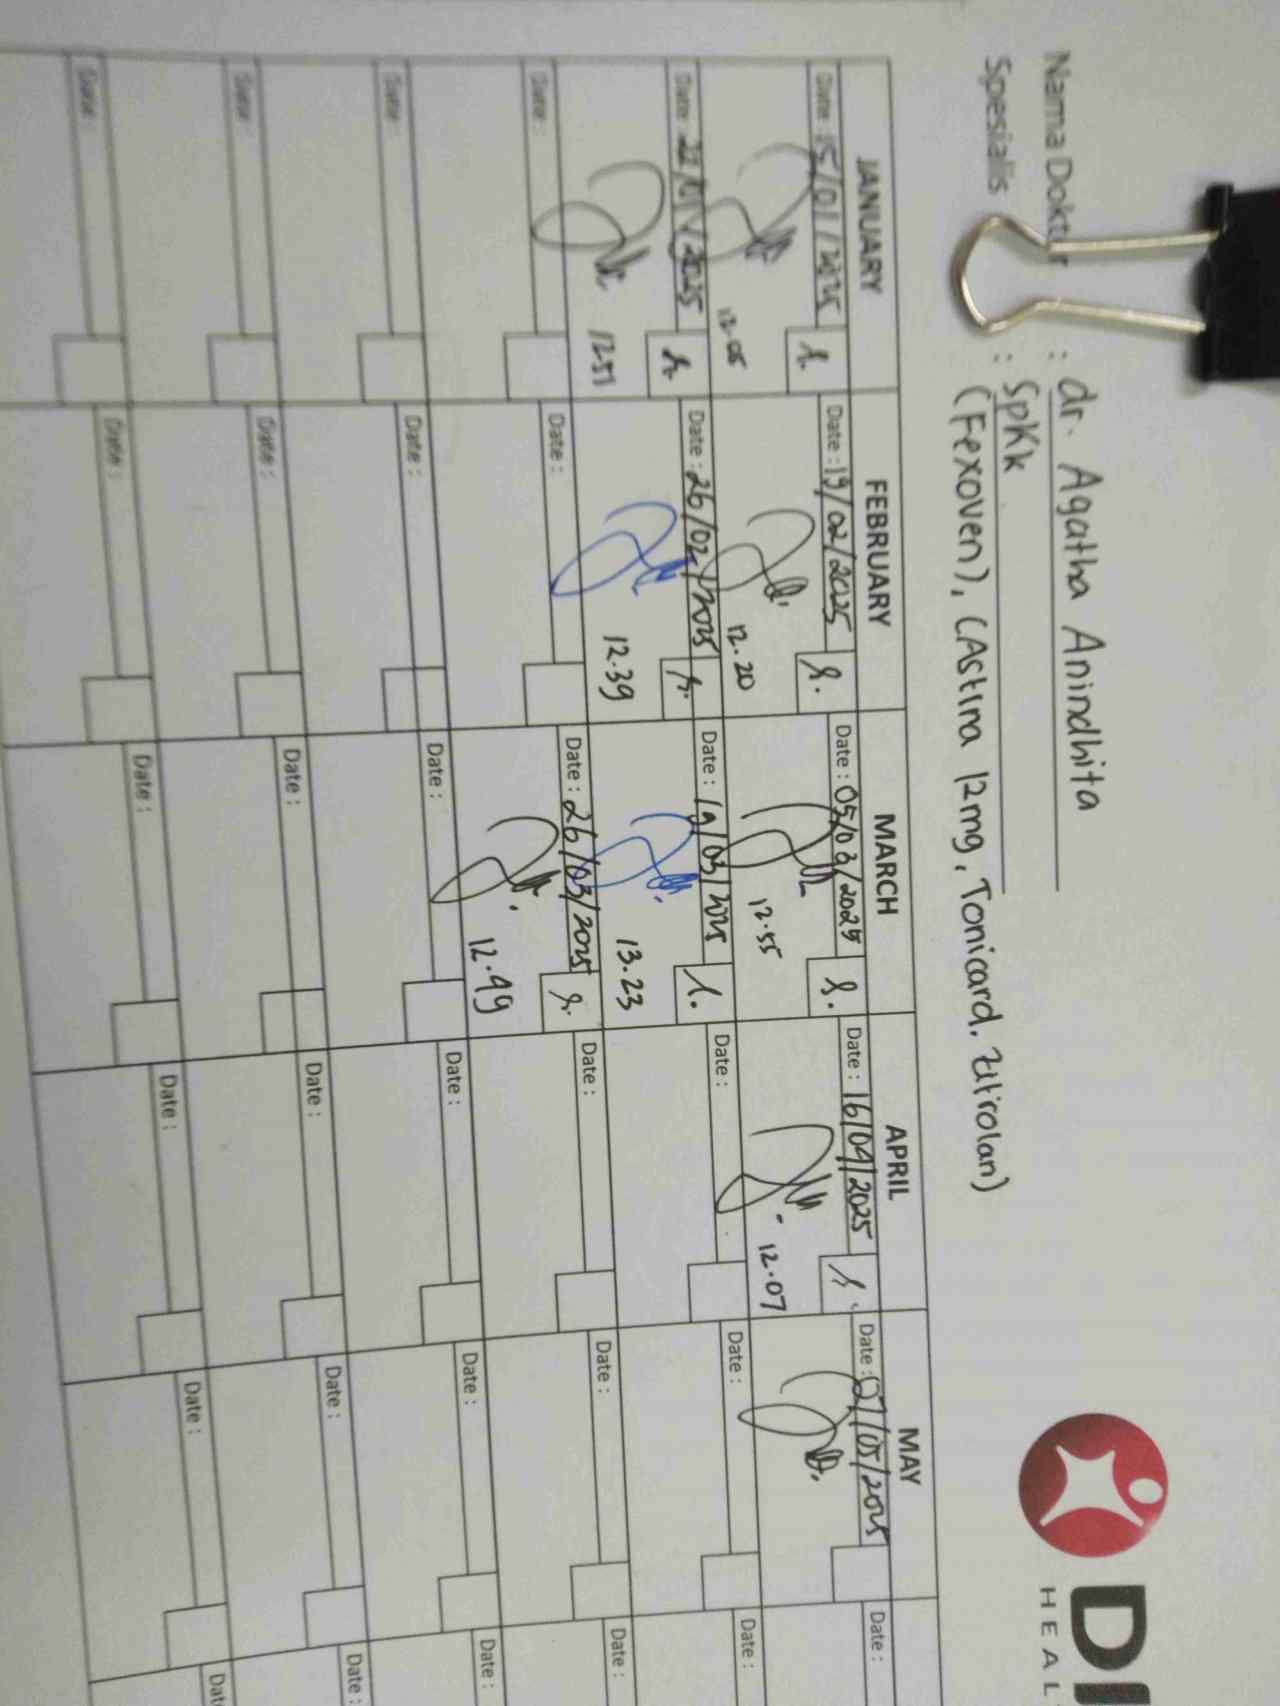 Nama Dokter : dr. Agatha Anindhita
Spesialis : SpKk
(Fexoven), (Astira 12mg, Tonicard, Zitrolan)
DI
HEAL
JANUARY FEBRUARY MARCH APRIL MAY
Date : 15/01/2025 Date : 19/02/2025 Date : 05/03/2025 Date : 16/04/2025 Date : 07/05/2025 Date :
12.05 12.20 12.55 12.07
Date : 22/01/2025 Date : 26/02/2025 Date : 19/03/2025 Date : Date : Date :
12.51 12.39 13.23
Date : Date : Date : 26/03/2025 Date : Date : Date :
12.49
Date : Date : Date : Date : Date : Date :
Date : Date : Date : Date : Date : Date :
Date : Date : Date : Date : Date : Dat